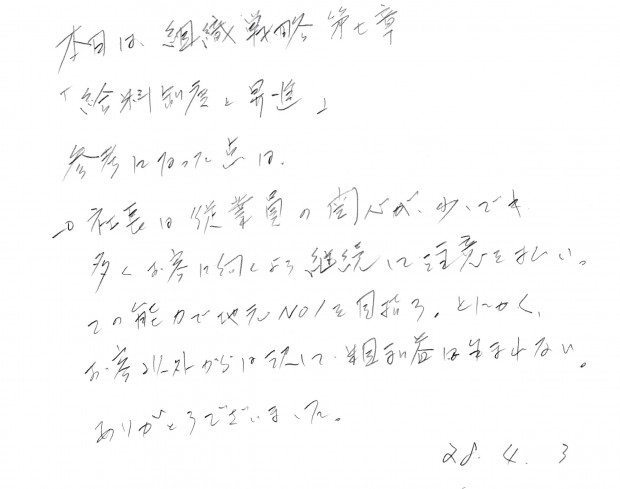 本日は、組織戦略第七章
「給料制度と昇進」
参考になった点は、
→社長は従業員の関心が、少しでも
多くお客に向くよう継続して注意を払い。
この能力で地元NO1を目指す。とにかく、
お客以外からは決して粗利益は生まれない。
ありがとうございました。
28.4.3